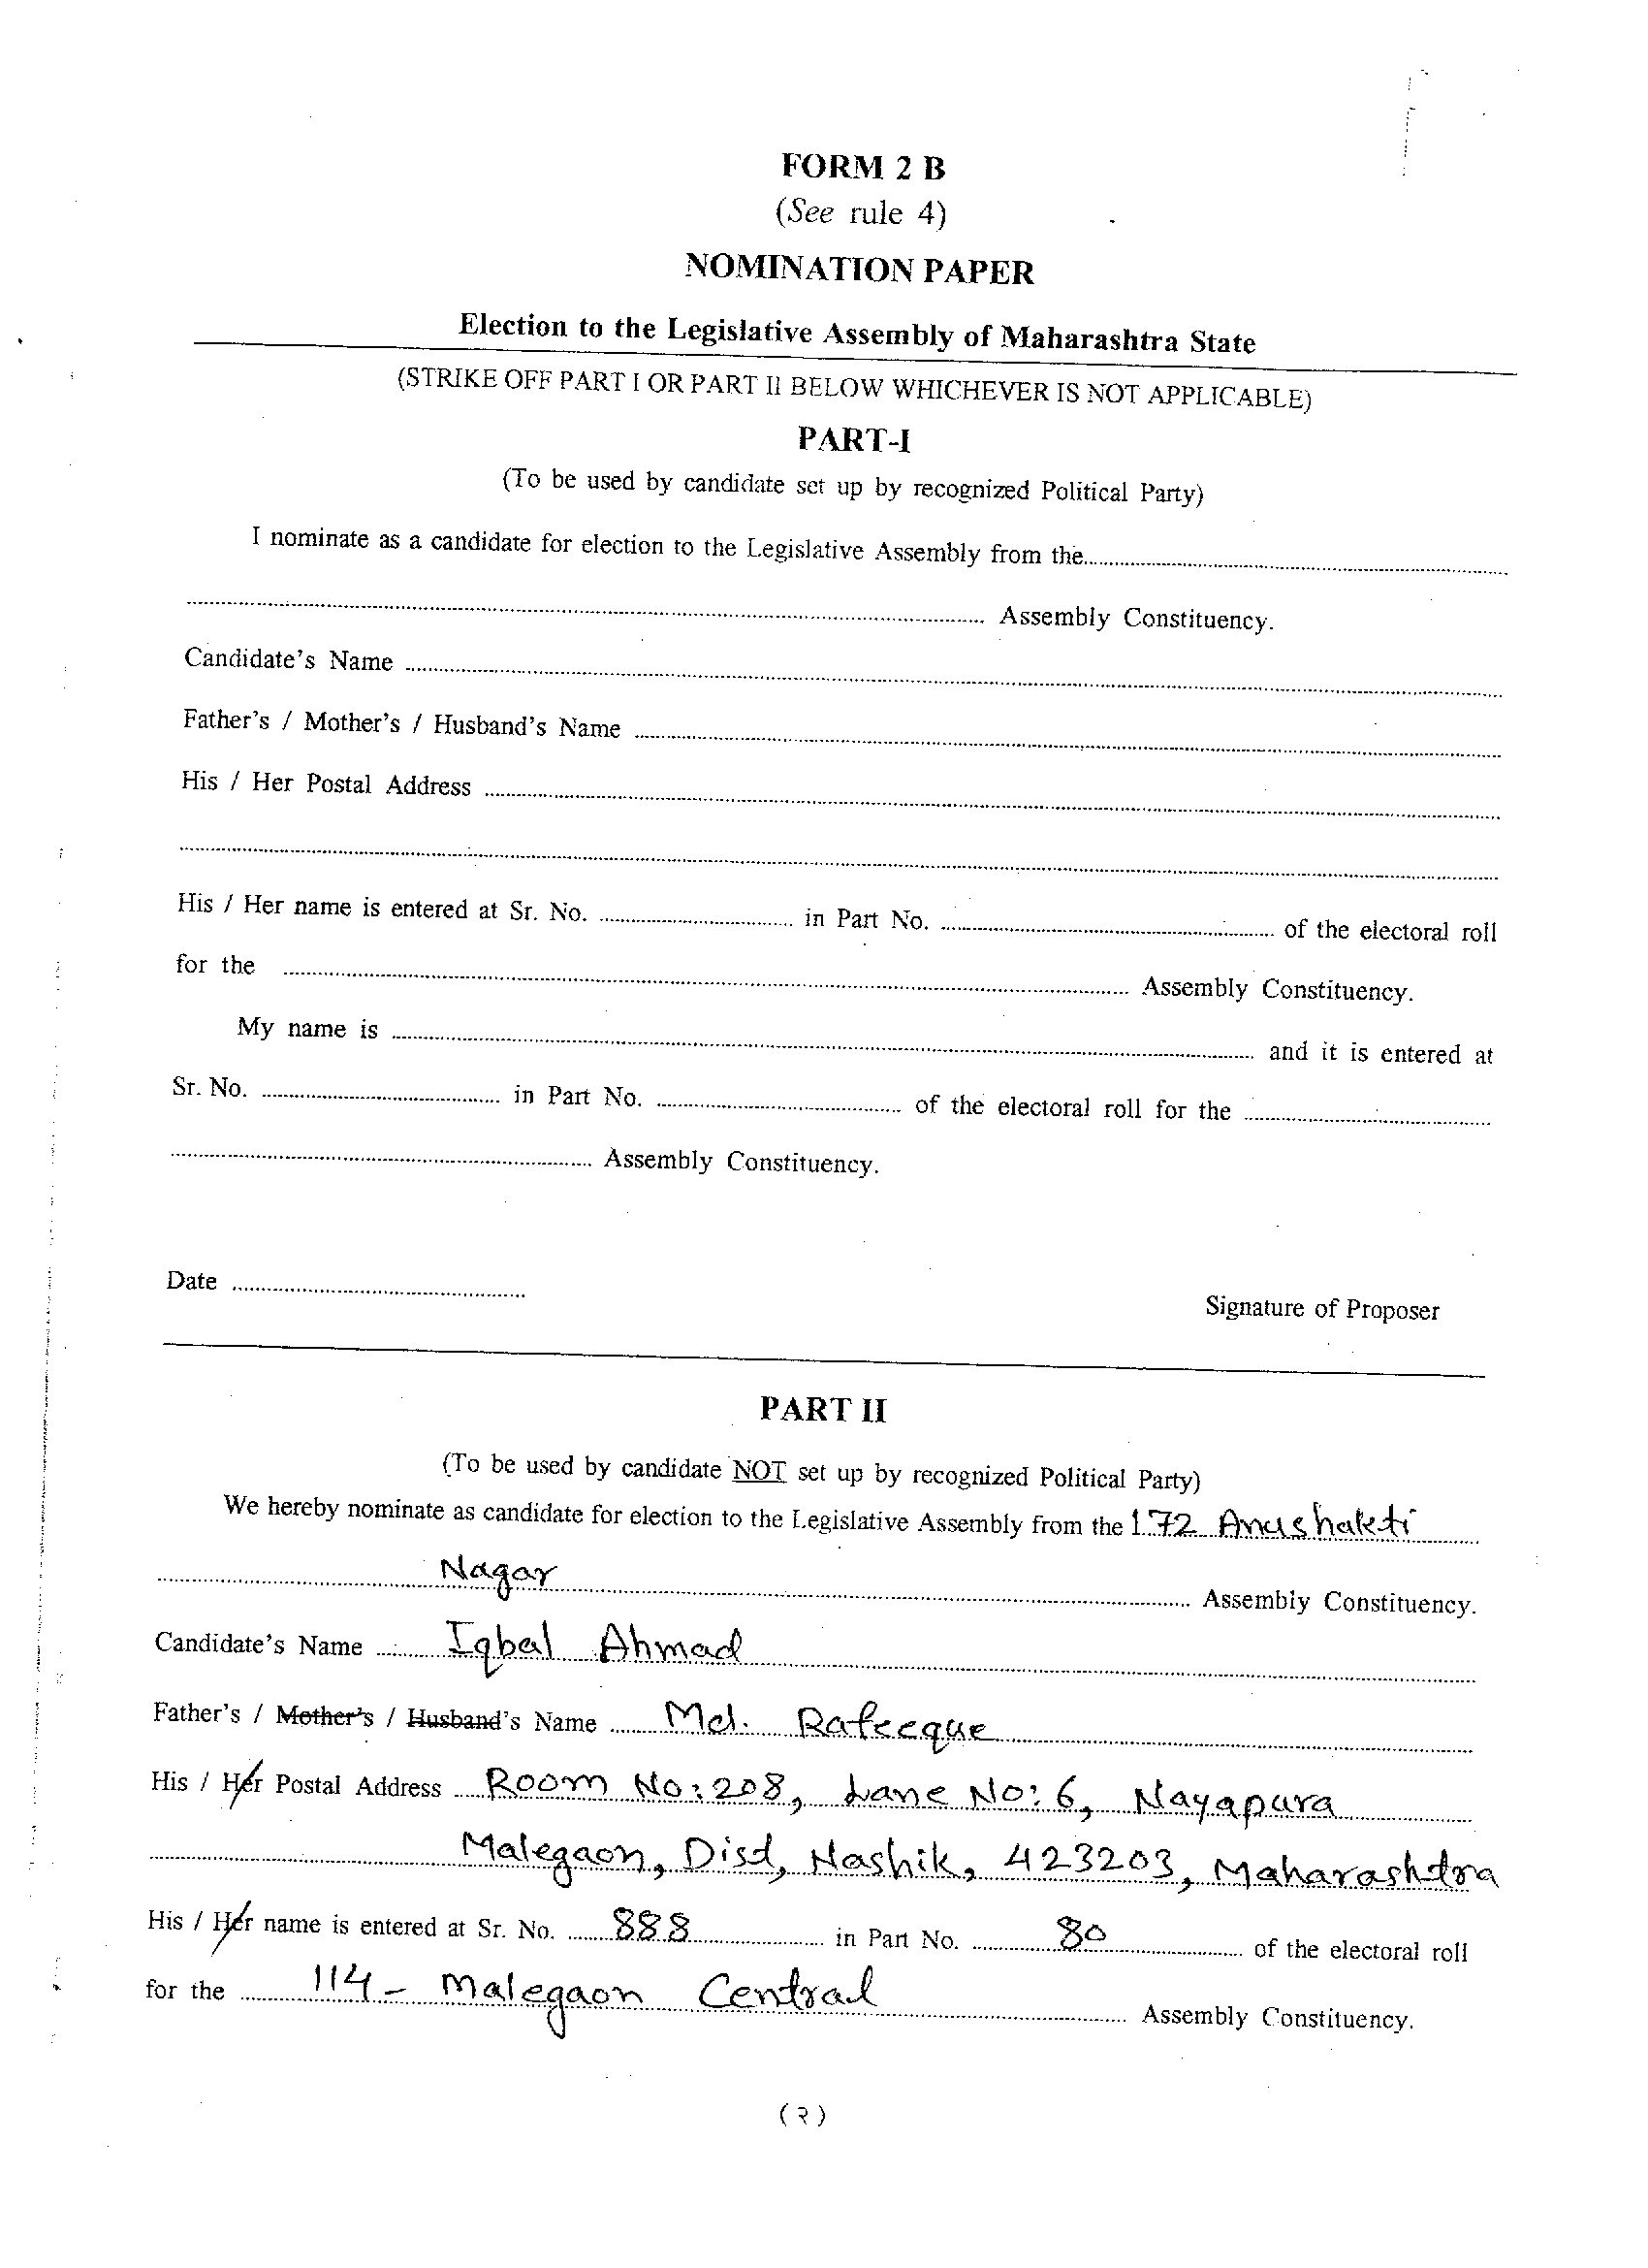 FORM 2 B
(See rule 4)
NOMINATION PAPER
Election to the Legislative Assembly of Maharashtra State
(STRIKE OFF PART I OR PART II BELOW WHICHEVER IS NOT APPLICABLE)
PART-I
(To be used by candidate set up by recognized Political Party)
I nominate as a candidate for election to the Legislative Assembly from the
Assembly Constituency.
Candidate's Name
Father's / Mother's / Husband's Name
His / Her Postal Address
His / Her name is entered at Sr. No. in Part No. of the electoral roll
for the Assembly Constituency.
My name is and it is entered at
Sr. No. in Part No. of the electoral roll for the
Assembly Constituency.
Date
Signature of Proposer
PART II
(To be used by candidate NOT set up by recognized Political Party)
We hereby nominate as candidate for election to the Legislative Assembly from the 172 Anushakti
Nagar Assembly Constituency.
Candidate's Name Iqbal Ahmad
Father's / Mother's / Husband's Name Md. Rafeeque
His / Her Postal Address Room No: 208, Lane No: 6, Nayapura
Malegaon, Dist, Nashik, 423203, Maharashtra
His / Her name is entered at Sr. No. 888 in Part No. 80 of the electoral roll
for the 114 - Malegaon Central Assembly Constituency.
(२)